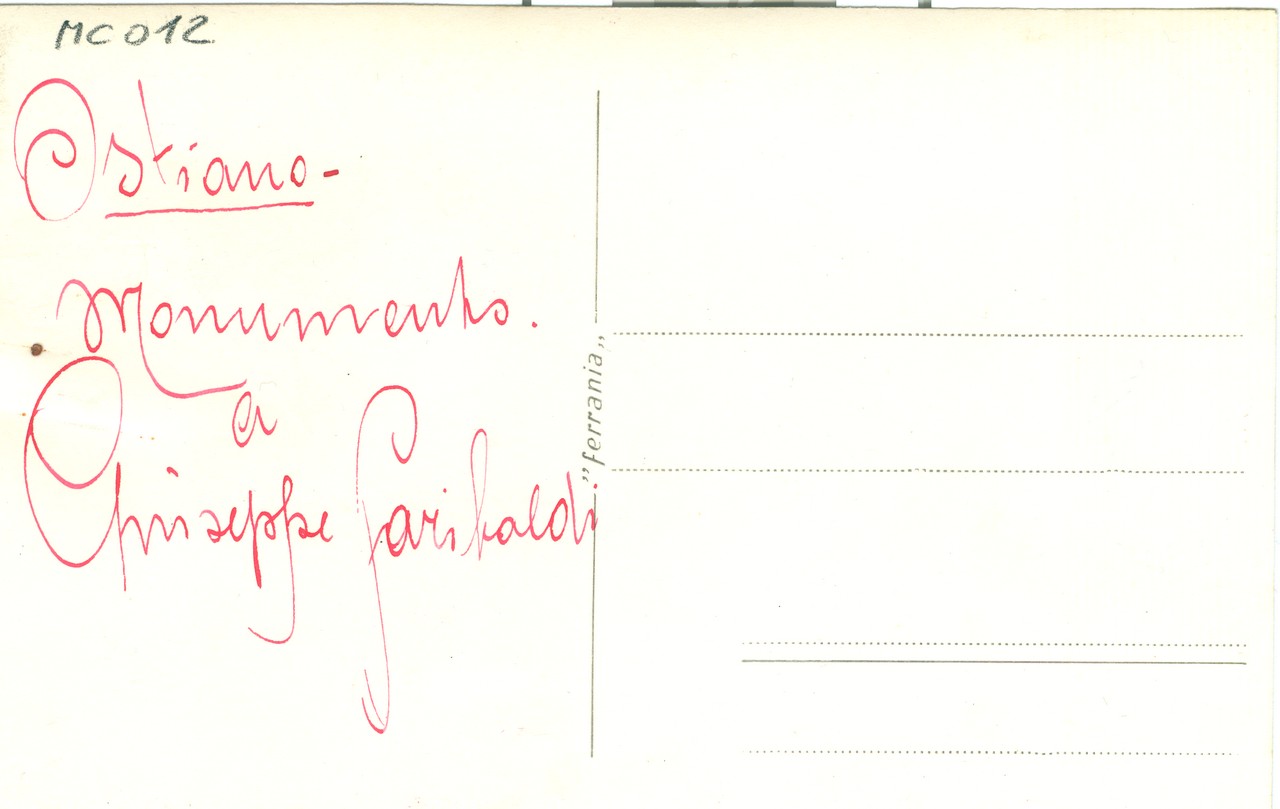 MC012
Ostiano-
Monumento.
a
Giuseppe Garibaldi
"ferrania"